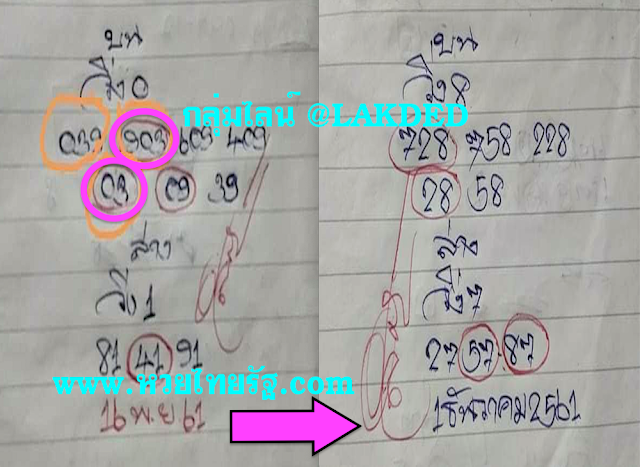 บน
วิ่ง 0
039 903 603 409
03 09 39
ล่าง
วิ่ง 1
81 41 91
16 พ.ย 61
บน
วิ่ง 8
728 758 228
28 58
ล่าง
วิ่ง 7
27 57 87
1 ธันวาคม 2561
กลุ่มไลน์ @LAKDED
www.หวยไทยรัฐ.com